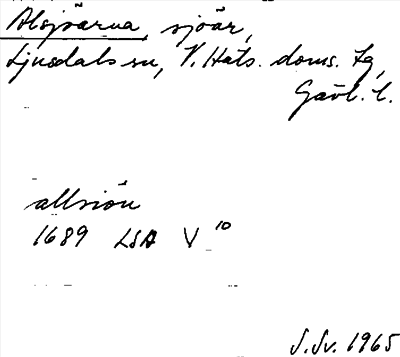 Alsjöarna, sjöar,
Ljusdals sn, V. Häls. doms. tg,
Gävl. l.
allsiön
1689 LSA V 10
S.Sv. 1965